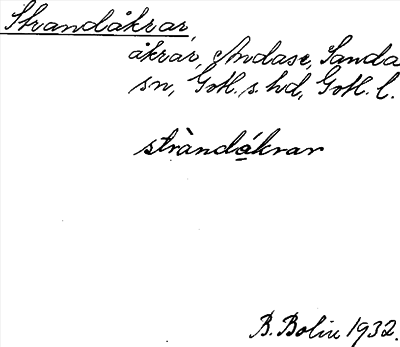 Strandåkrar,
åkrar, Andase, Sanda
sn, Gotl. s. hd, Gotl. l.
stràndákrar
B. Bolin 1932.